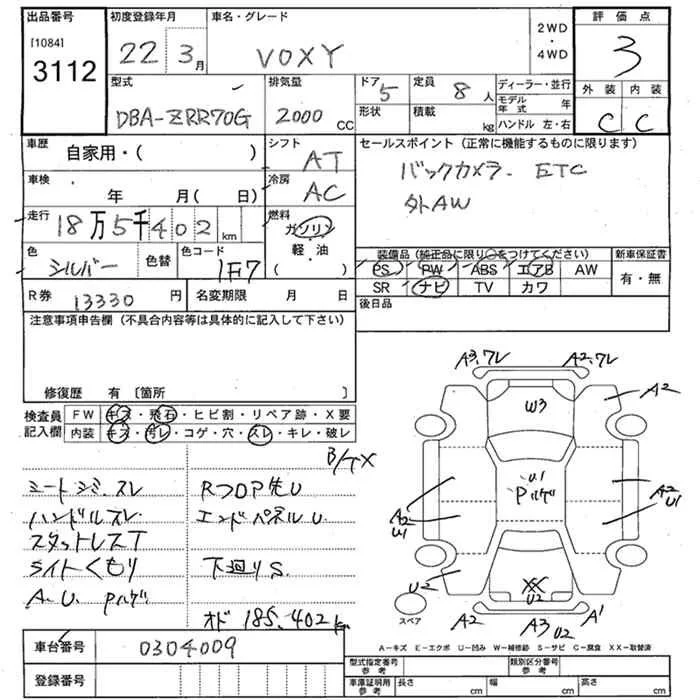 出品番号
[1084]
3112
初度登録年月
22年 3月
車名・グレード
VOXY
2WD
・
4WD
評価点
3
型式
DBA-ZRR70G
排気量
2000 CC
ドア 5
形状
定員 8人
積載 kg
ディーラー・並行
モデル年式 年
ハンドル 左・右
外装 内装
C C
車歴
自家用・( )
シフト
AT
セールスポイント(正常に機能するものに限ります)
バックカメラ. ETC
外AW
車検
年 月( 日)
冷房
AC
走行
18万5千402km
燃料
ガソリン
・
軽・油
( )
色
シルバー
色替
色コード
1F7
装備品(純正品に限り○をつけてください)
PS PW ABS エアB AW
SR ナビ TV カワ
新車保証書
有・無
R券 13330円
名変期限 月 日
後日品
注意事項申告欄(不具合内容等は具体的に記入して下さい)
修復歴 有〔箇所 〕
検査員記入欄
FW キズ・飛石・ヒビ割・リペア跡・X要
内装 キズ・汚レ・コゲ・穴・スレ・キレ・破レ
シートシミ.スレ
ハンドルスレ.
スタットレスT
ライトくもり
A.U. Pハゲ
RフロアP先U
エンドパネルU.
下廻りS.
オド 185.402km
A3.ワレ A2.ワレ
A2
W3
U1
Pハゲ
A2
U1
A2
U1
U2
XX
U2
A2 A3 U2 A1
スペア
車台番号 0304009
登録番号
A-キズ E-エクボ U-凹み W-補修跡 S-サビ C-腐食 XX-取替済
型式指定番号 参考
類別区分番号 参考
車庫証明用 参考
長さ cm 幅 cm 高さ cm